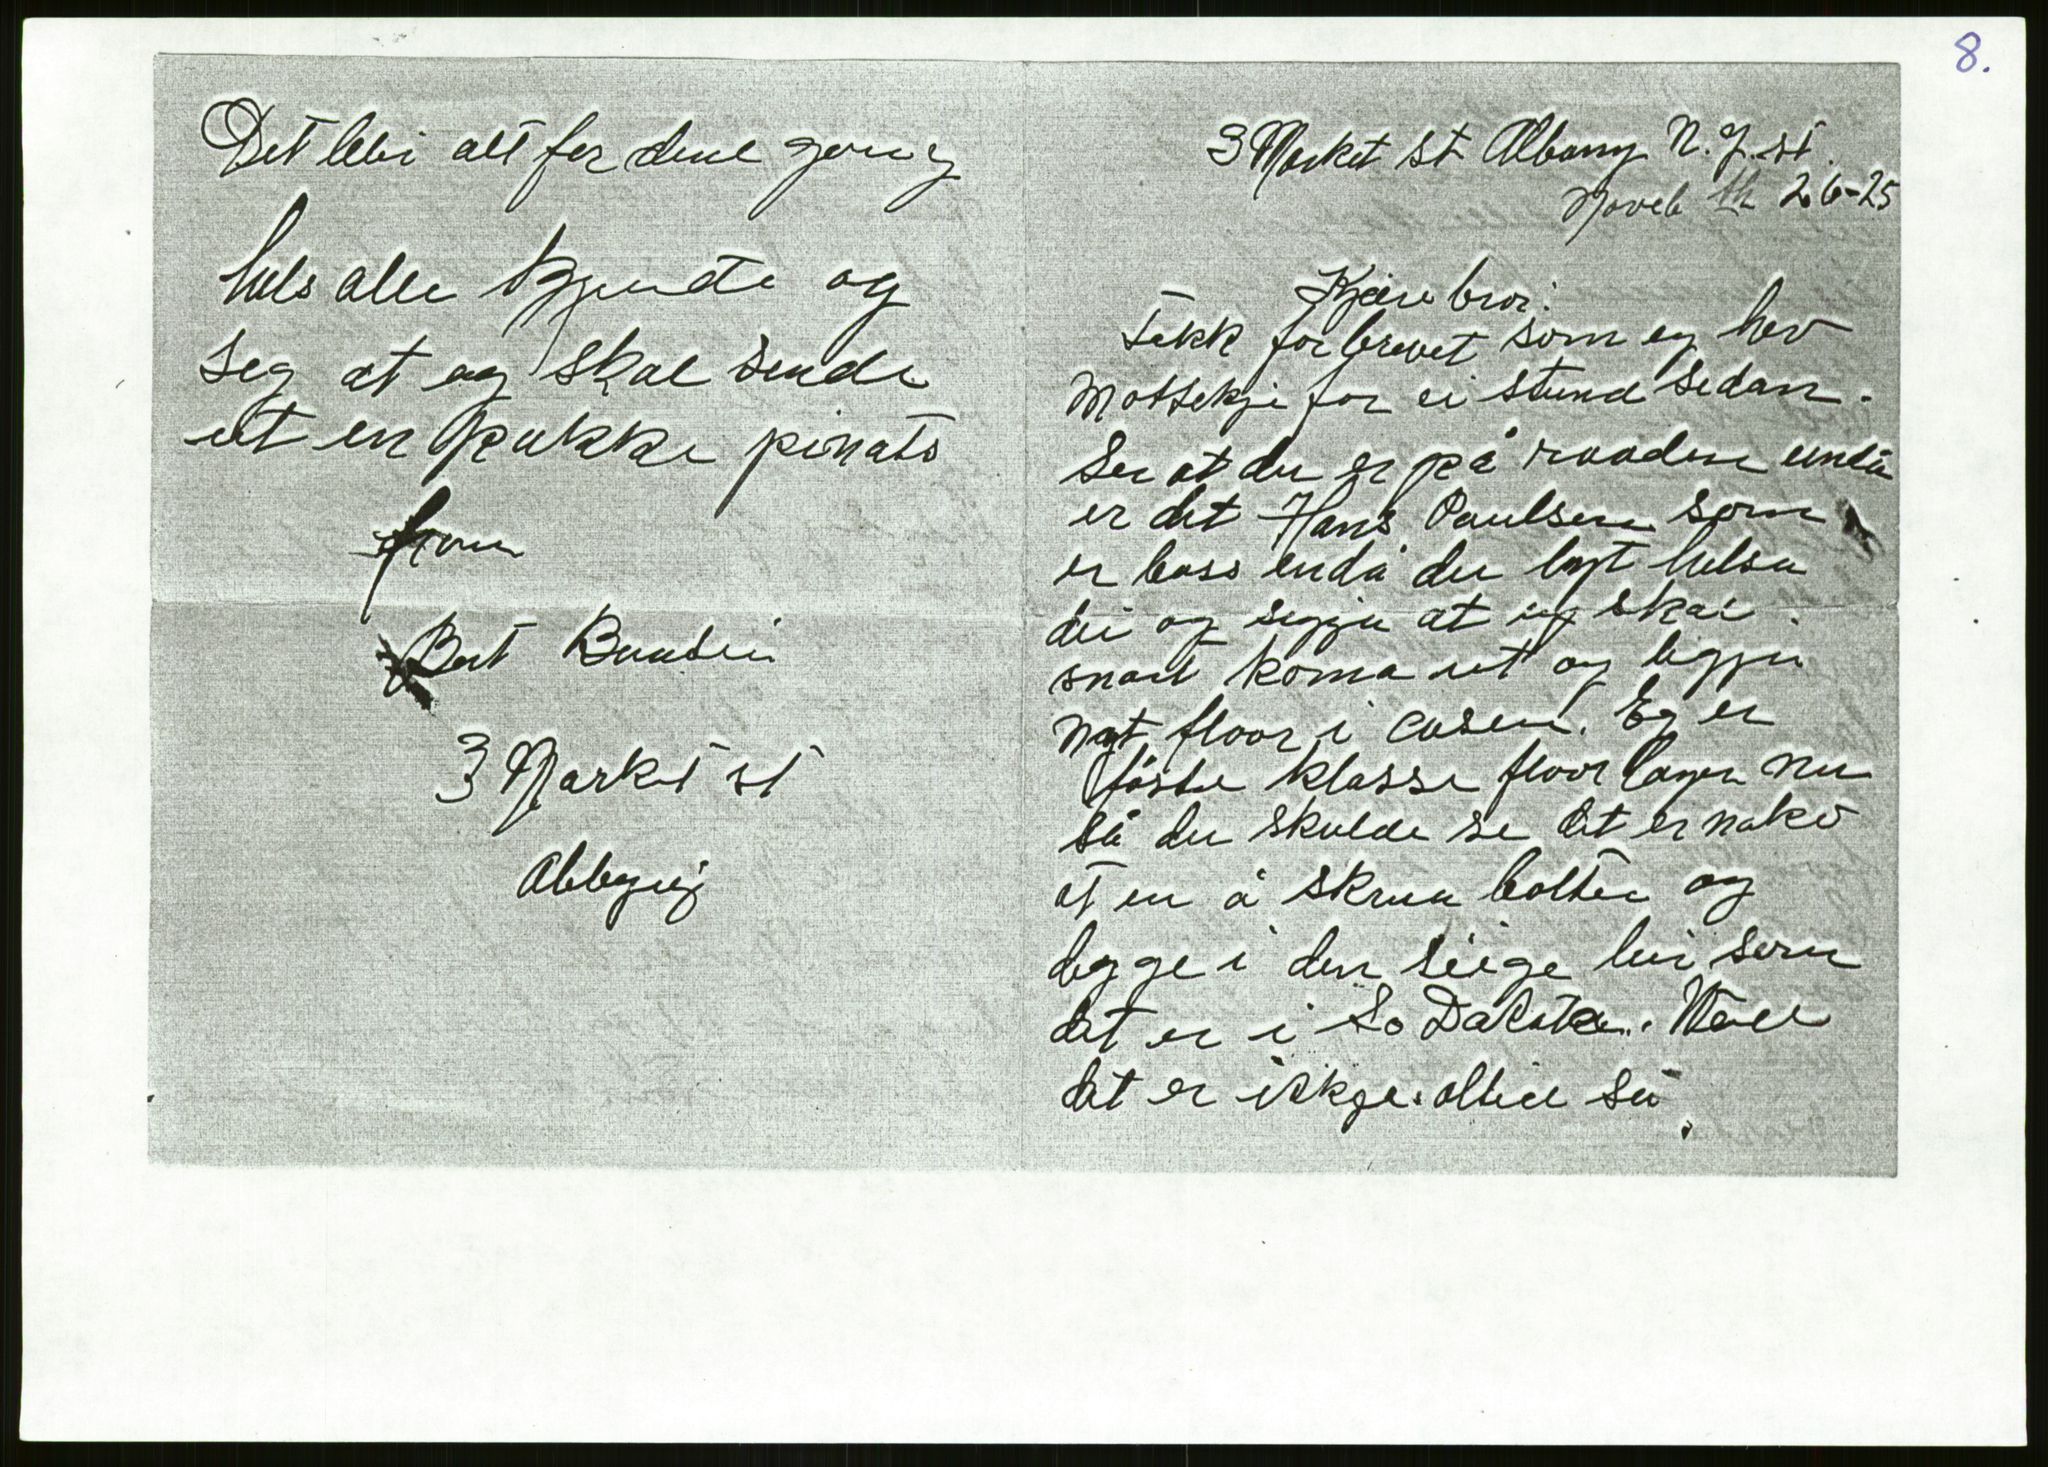 8.
Det bli alt for dene gong
hels alle kjende og
seg at eg skal sende
ut en pakke pinats
from
Bert
3 Market st
3 Market st Albany N.Y. st.
Noveb th 26-25
Kjære bror.
Takk for brevet som eg hev
Mottekje for ei stund sedan.
Ser at du er på rooden endå
er det Hans Paulsen som
er boss endå du bØt helsa
dei og seggja at eg skal
snart koma ut og leggja
nyt floor i casen. Eg er
föste klasse floor layer nu
så du skulde se det er nakO
at en å skrua bolter og
bygge i den seige lei som
det er i So Dakota. Well
det er ikkje altid så